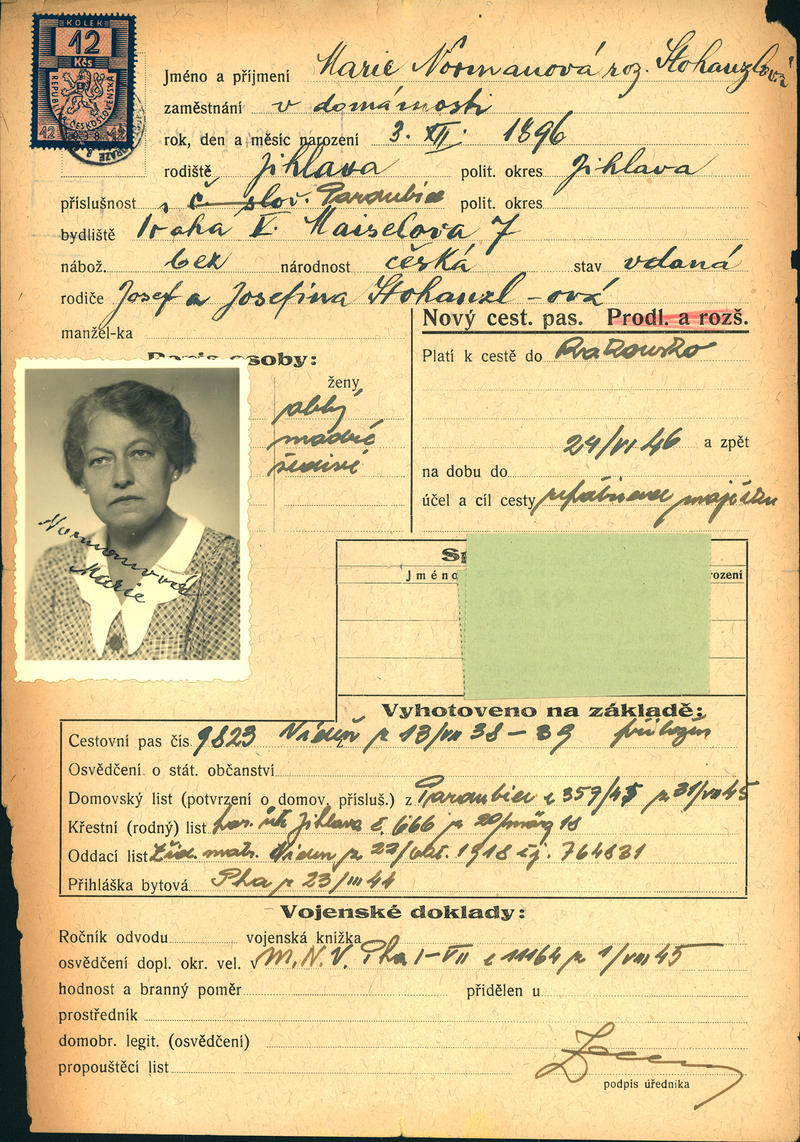 KOLEK
12
Kčs
REPUBLIKA ČESKOSLOVENSKÁ
12 12
Jméno a příjmení Marie Normanová roz. Stohanzlová
zaměstnání v domácnosti
rok, den a měsíc narození 3. XII. 1896
rodiště Jihlava polit. okres Jihlava
příslušnost č. slov. Pardubice polit. okres
bydliště Praha V. Maiselova 7
nábož. bez národnost česká stav vdaná
rodiče Josef a Josefina Stohanzl-ová
manžel-ka
Nový cest. pas. Prodl. a rozš.
Popis osoby:
ženy
oblý
modré
šedivé
Platí k cestě do Rakousko
24/VI 46 a zpět
na dobu do
účel a cíl cesty majetku
Normanová
Marie
Sp
Jméno rození
Vyhotoveno na základě:
Cestovní pas čís. 9823 Vídeň z 13/VII 38-39 přiložen
Osvědčení o stát. občanství
Domovský list (potvrzení o domov. přísluš.) z Pardubice č 359/45 z 31/VII 45
Křestní (rodný) list Jihlava č. 666 z 20/märz 18
Oddací list Žid. mat. Vídeň z 22/ 1918 čj. 764831
Přihláška bytová Pha z 23/III 44
Vojenské doklady:
Ročník odvodu vojenská knížka
osvědčení dopl. okr. vel. v M.N.V. Pha I-VII č 11164 z 1/VIII 45
hodnost a branný poměr přidělen u
prostředník
domobr. legit. (osvědčení)
propouštěcí list
podpis úředníka